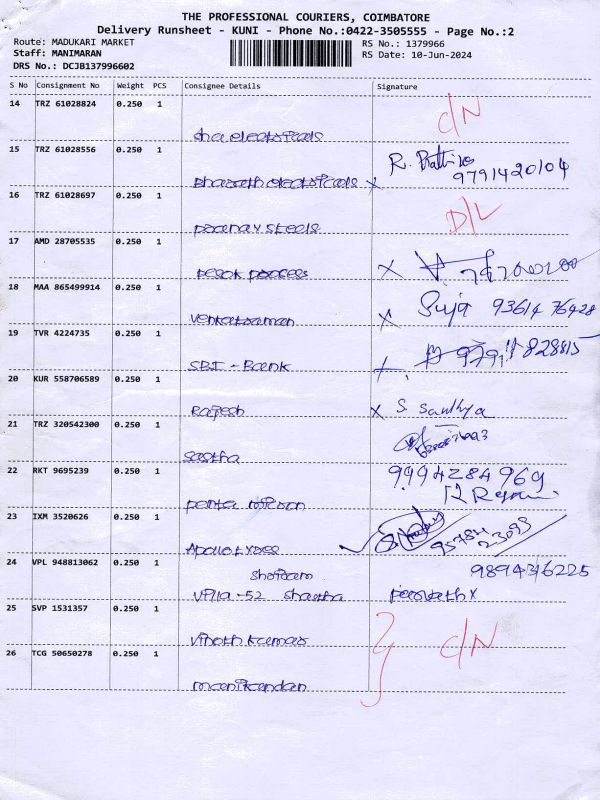 THE PROFESSIONAL COURIERS, COIMBATORE
Delivery Runsheet - KUNI - Phone No.:0422-3505555 - Page No.:2
Route: MADUKARI MARKET
Staff: MANIMARAN
DRS No.: DCJB137996602
RS No.: 1379966
RS Date: 10-Jun-2024
S No Consignment No Weight PCS Consignee Details Signature
14 TRZ 61028824 0.250 1
sha electricals C/N
15 TRZ 61028556 0.250 1
Bharath electricals x R. 9791420104
16 TRZ 61028697 0.250 1
steels D/L
17 AMD 28705535 0.250 1
x
18 MAA 865499914 0.250 1
venkatraman x Suja 93614 76428
19 TVR 4224735 0.250 1
SBI - Bank
20 KUR 558706589 0.250 1
Rajesh x S. Santhya
21 TRZ 320542300 0.250 1
Sastha
22 RKT 9695239 0.250 1
9994284969
23 IXM 3520626 0.250 1
Apollo 95784 23093
24 VPL 948813062 0.250 1
Shriram
Villa-52 9894316225
25 SVP 1531357 0.250 1
Vinoth kumar C/N
26 TCG 50650278 0.250 1
manikandan